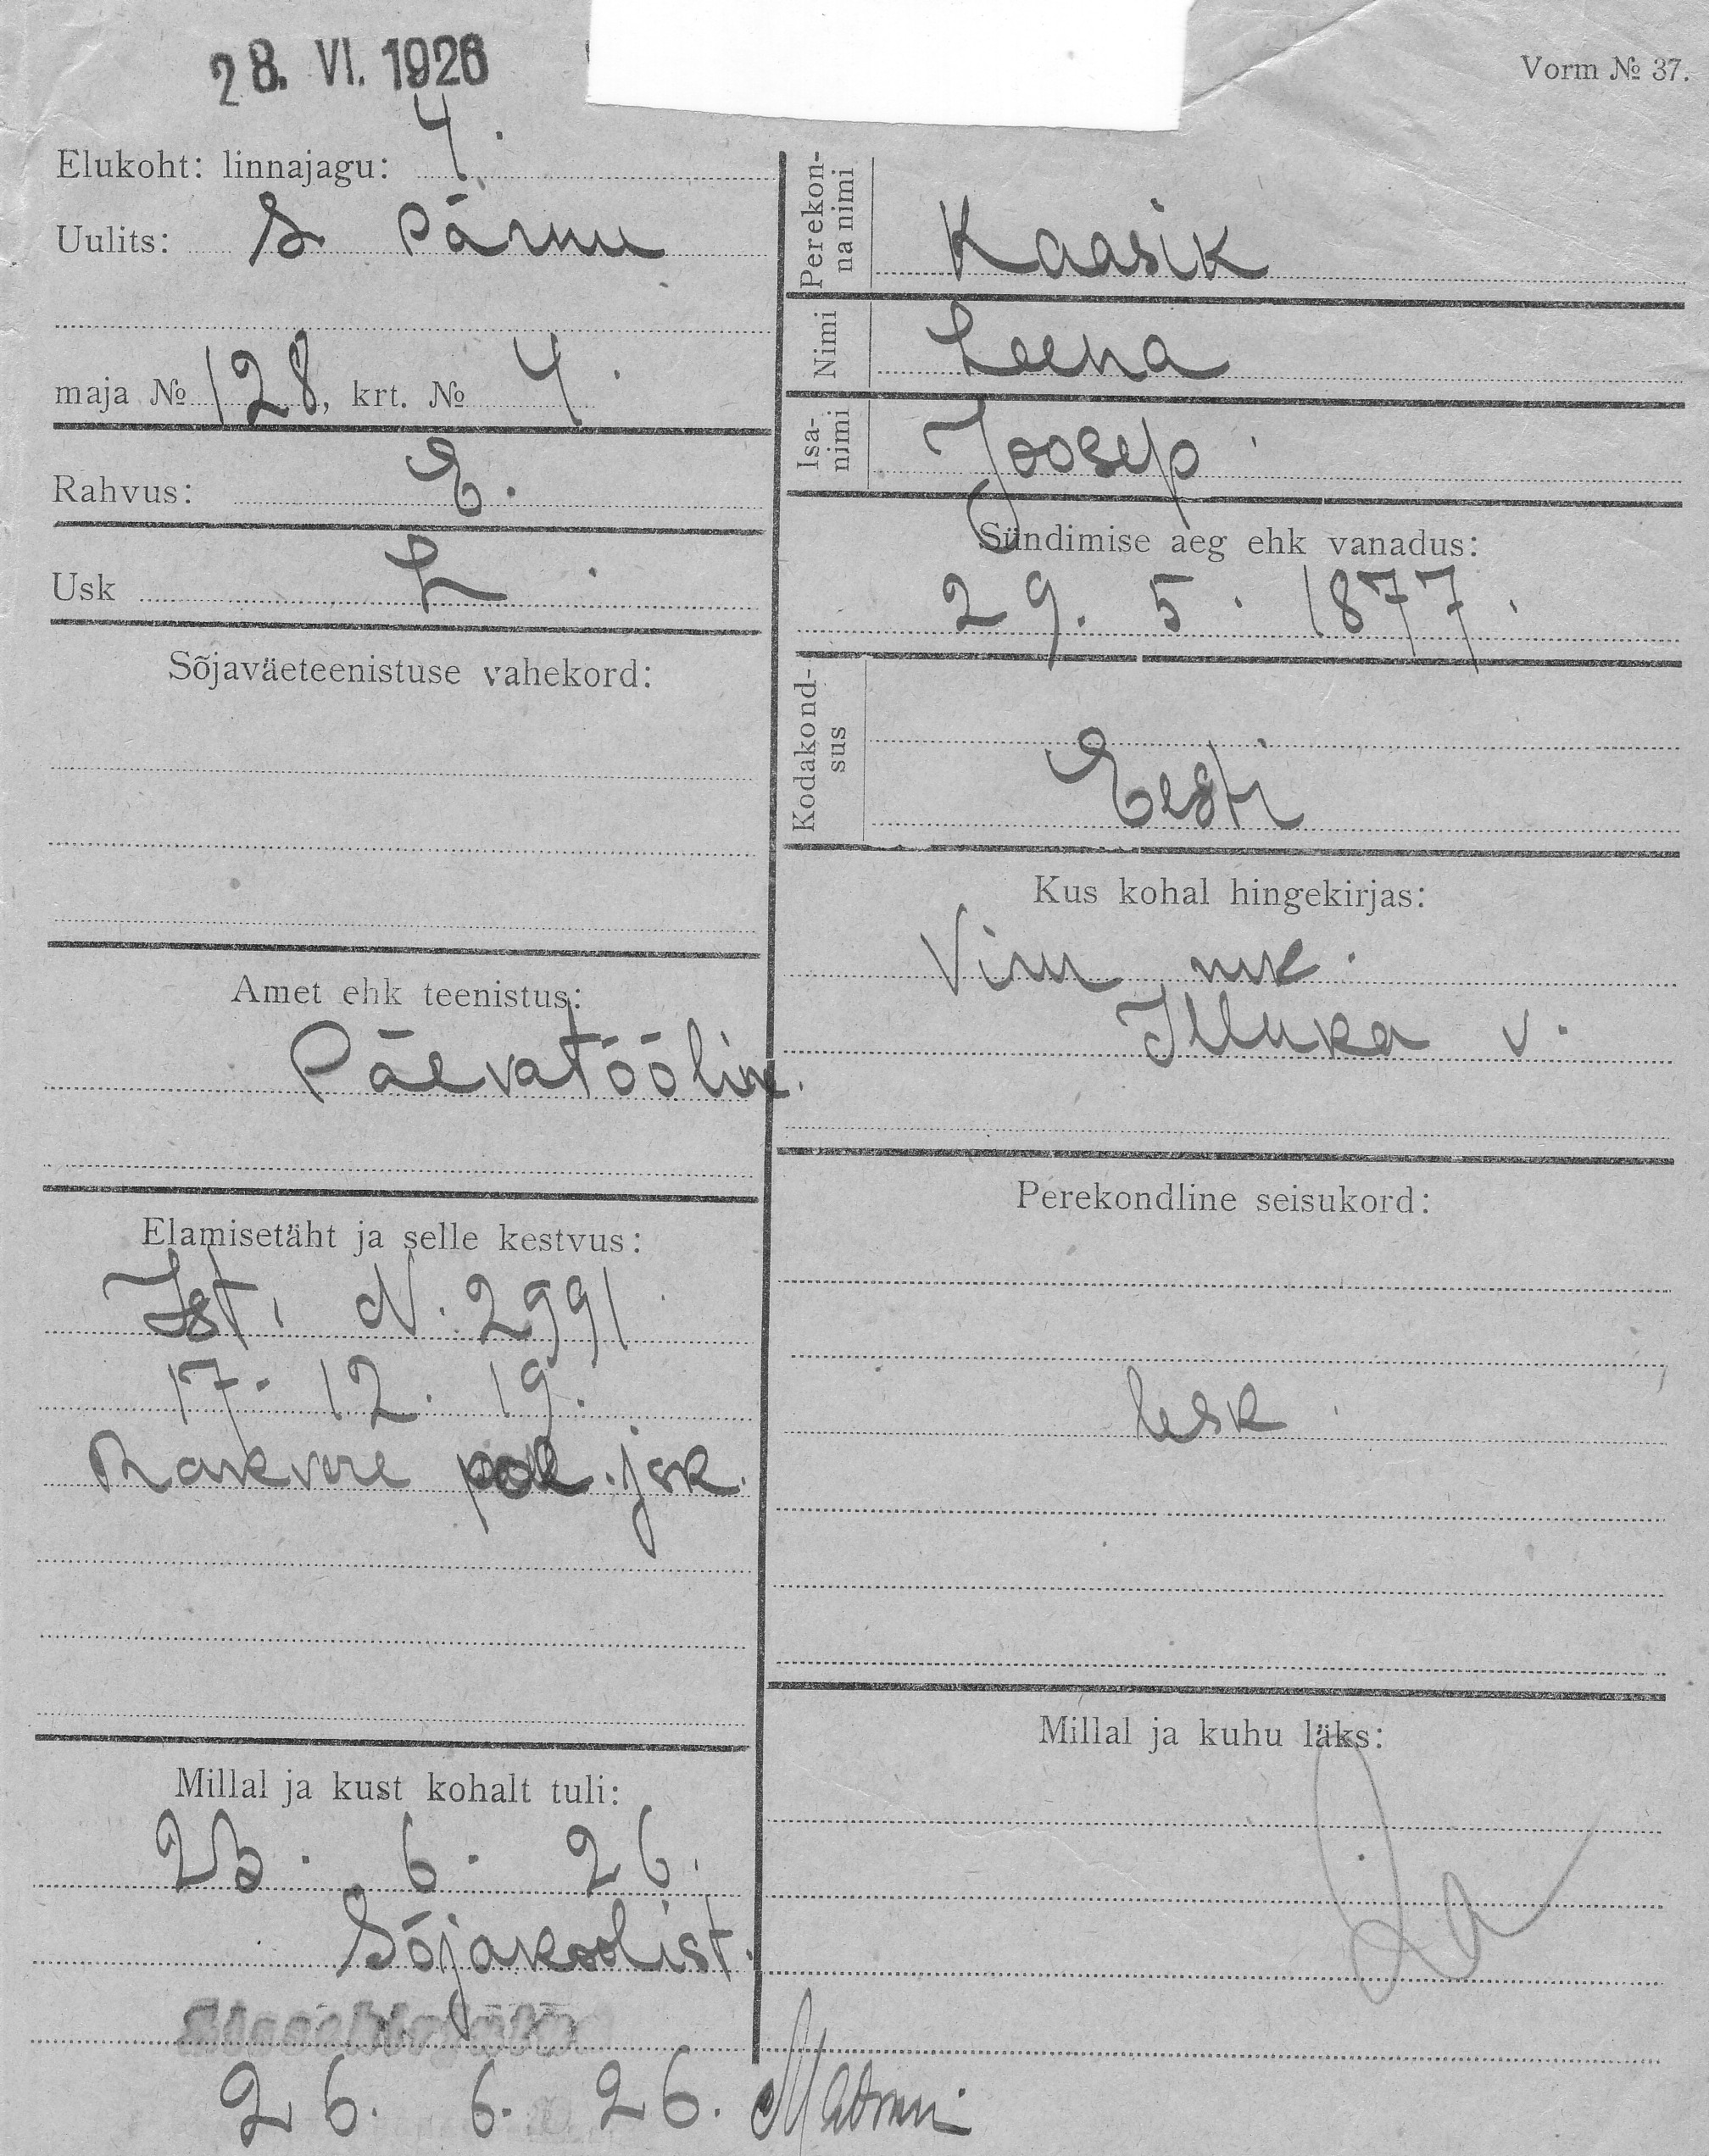 28. VI. 1926
Vorm № 37.
Elukoht: linnajagu: 4.
Uulits: S Pärnu
maja № 128, krt. № 4.
Rahvus: E.
Usk L.
Sõjaväeteenistuse vahekord:
Amet ehk teenistus:
Päevatööline.
Elamisetäht ja selle kestvus:
Ist. N. 2991
17. 12. 19.
Rakvere pol. jsk.
Millal ja kust kohalt tuli:
6. 26.
Sõjakoolist.
26. 6. 26.
Perekonna nimi Kaasik
Nimi Leena
Isanimi Joosep
Sündimise aeg ehk vanadus:
29. 5. 1877.
Kodakondsus
Eesti
Kus kohal hingekirjas:
Viru mk.
Illuka v.
Perekondline seisukord:
lesk
Millal ja kuhu läks: